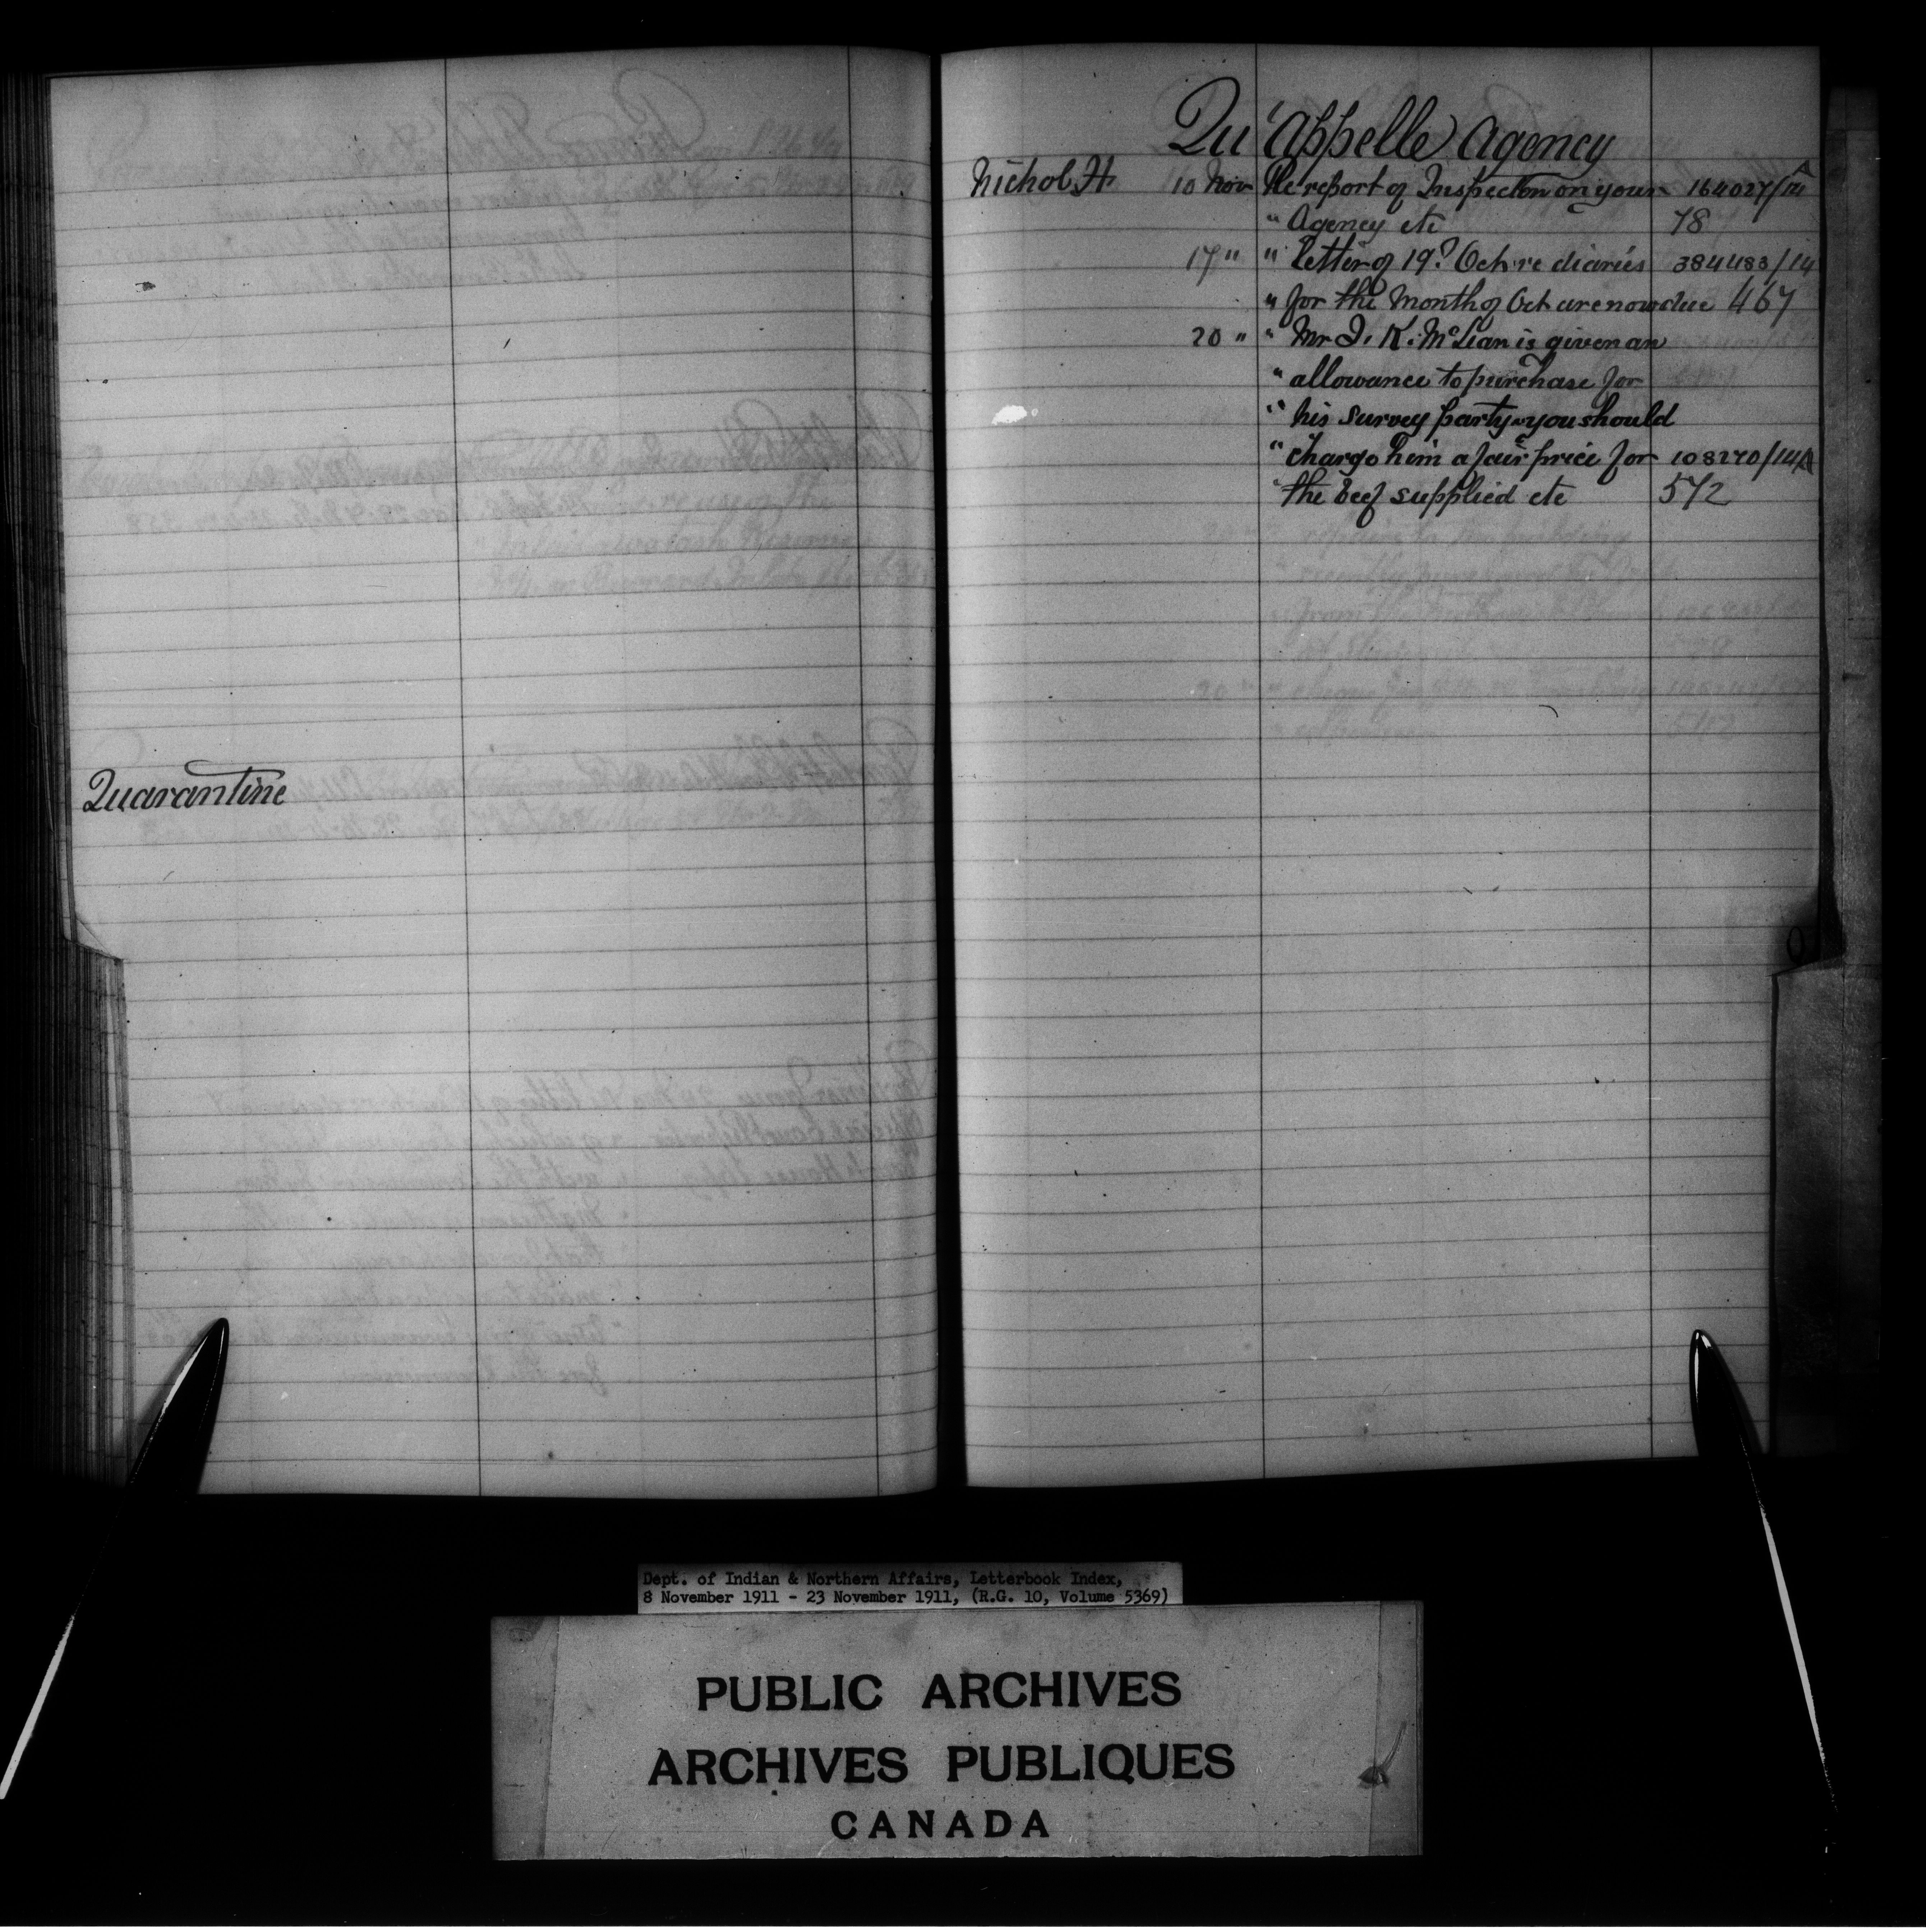 Quarantine
Qu'Appelle Agency
Nichol H. 10 Nov Re report of Inspection on your 164027/14
" Agency etc 78
17 " " letter of 19? Oct. re diaries 384483/14
" for the Month of Oct are now due 467
20 " " Mr J. K. McLean is given an
" allowance to purchase for
" his survey party & you should
" charge him a fair price for 108270/14A
" the beef supplied etc 572
Dept. of Indian & Northern Affairs, Letterbook Index,
8 November 1911 - 23 November 1911, (R.G. 10, Volume 5369)
PUBLIC ARCHIVES
ARCHIVES PUBLIQUES
CANADA